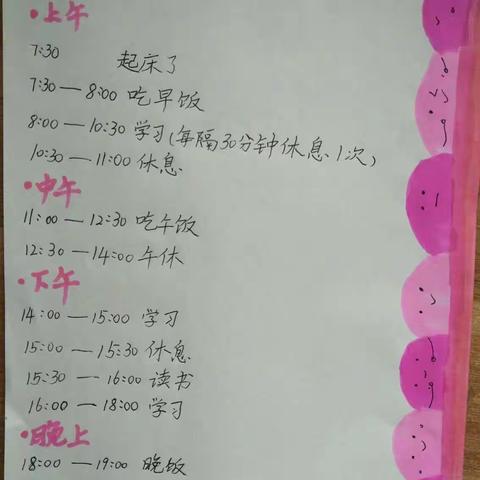 ·上午
7:30 起床了
7:30—8:00 吃早饭
8:00—10:30 学习(每隔30分钟休息1次)
10:30—11:00 休息
·中午
11:00—12:30 吃午饭
12:30—14:00 午休
·下午
14:00—15:00 学习
15:00—15:30 休息
15:30—16:00 读书
16:00—18:00 学习
·晚上
18:00—19:00 晚饭